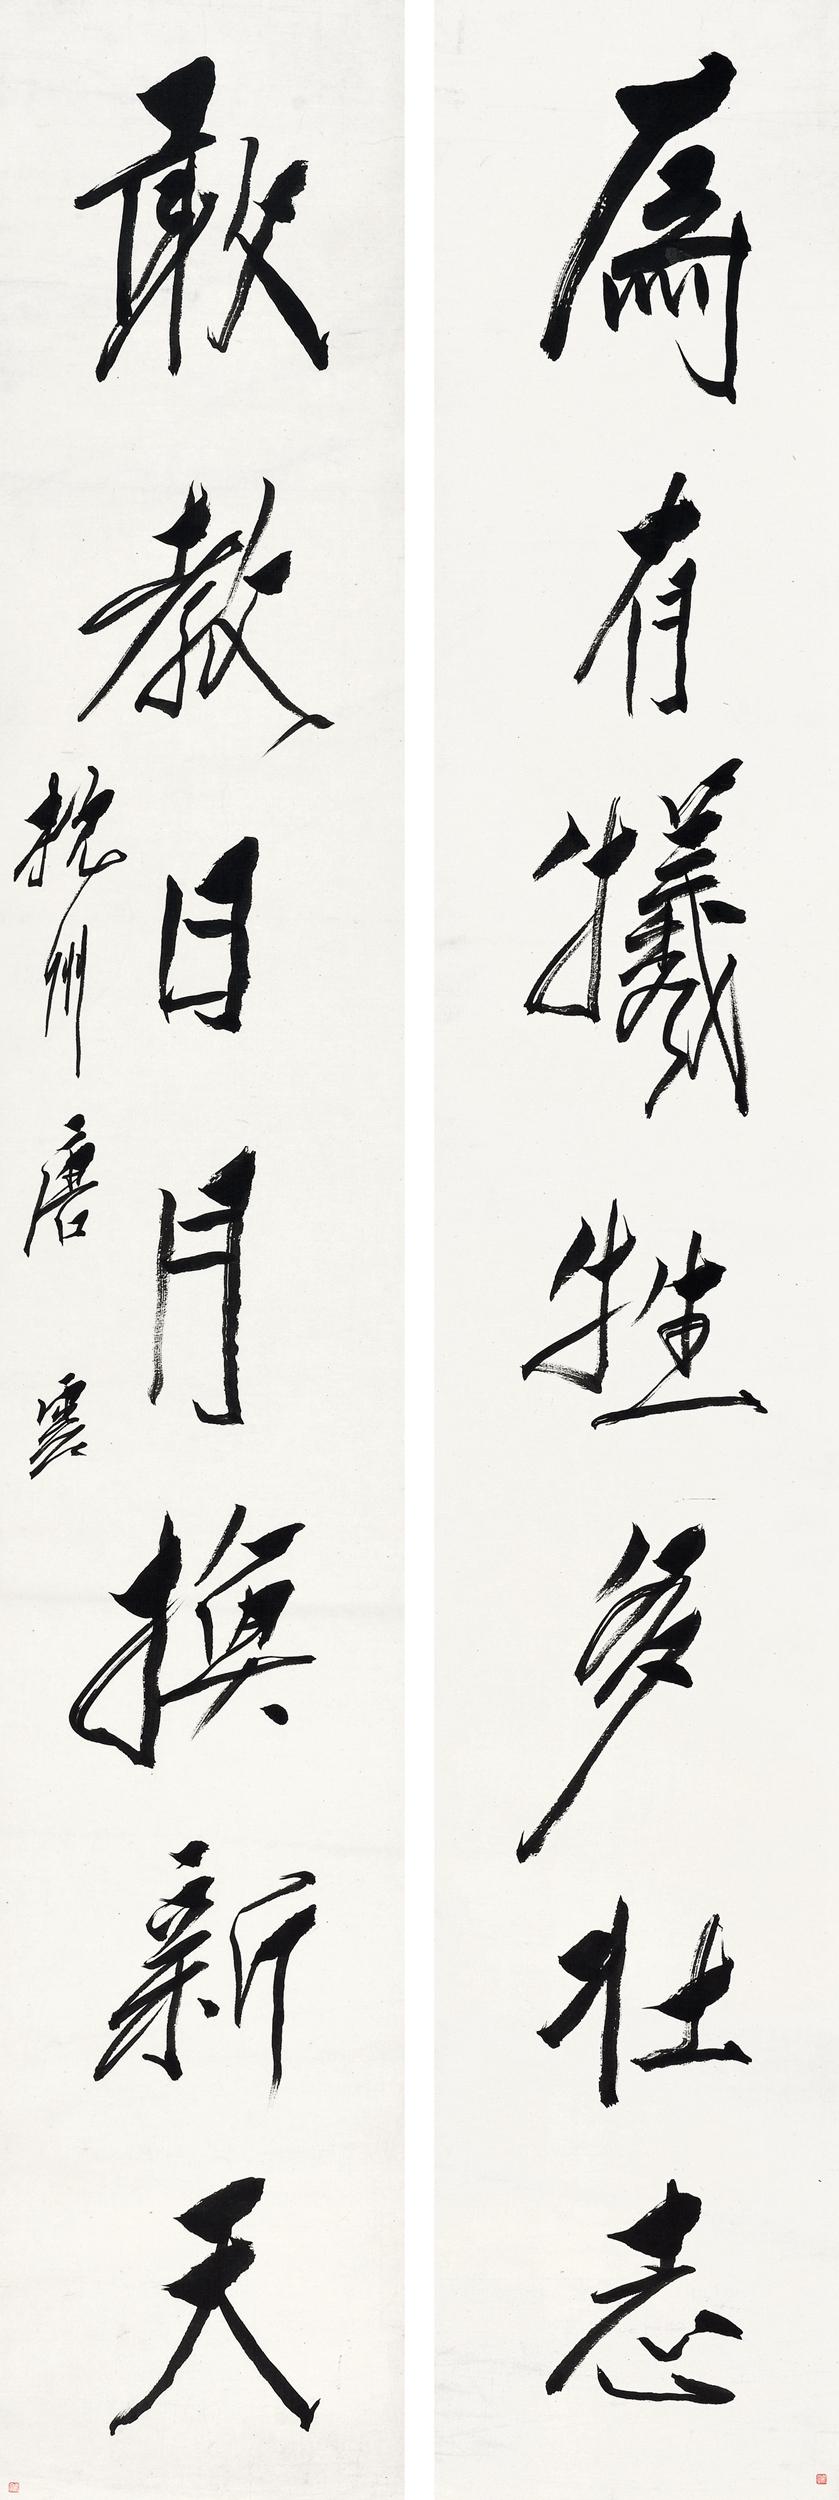 為有犧牲多壯志
敢教日月換新天
杭州唐雲